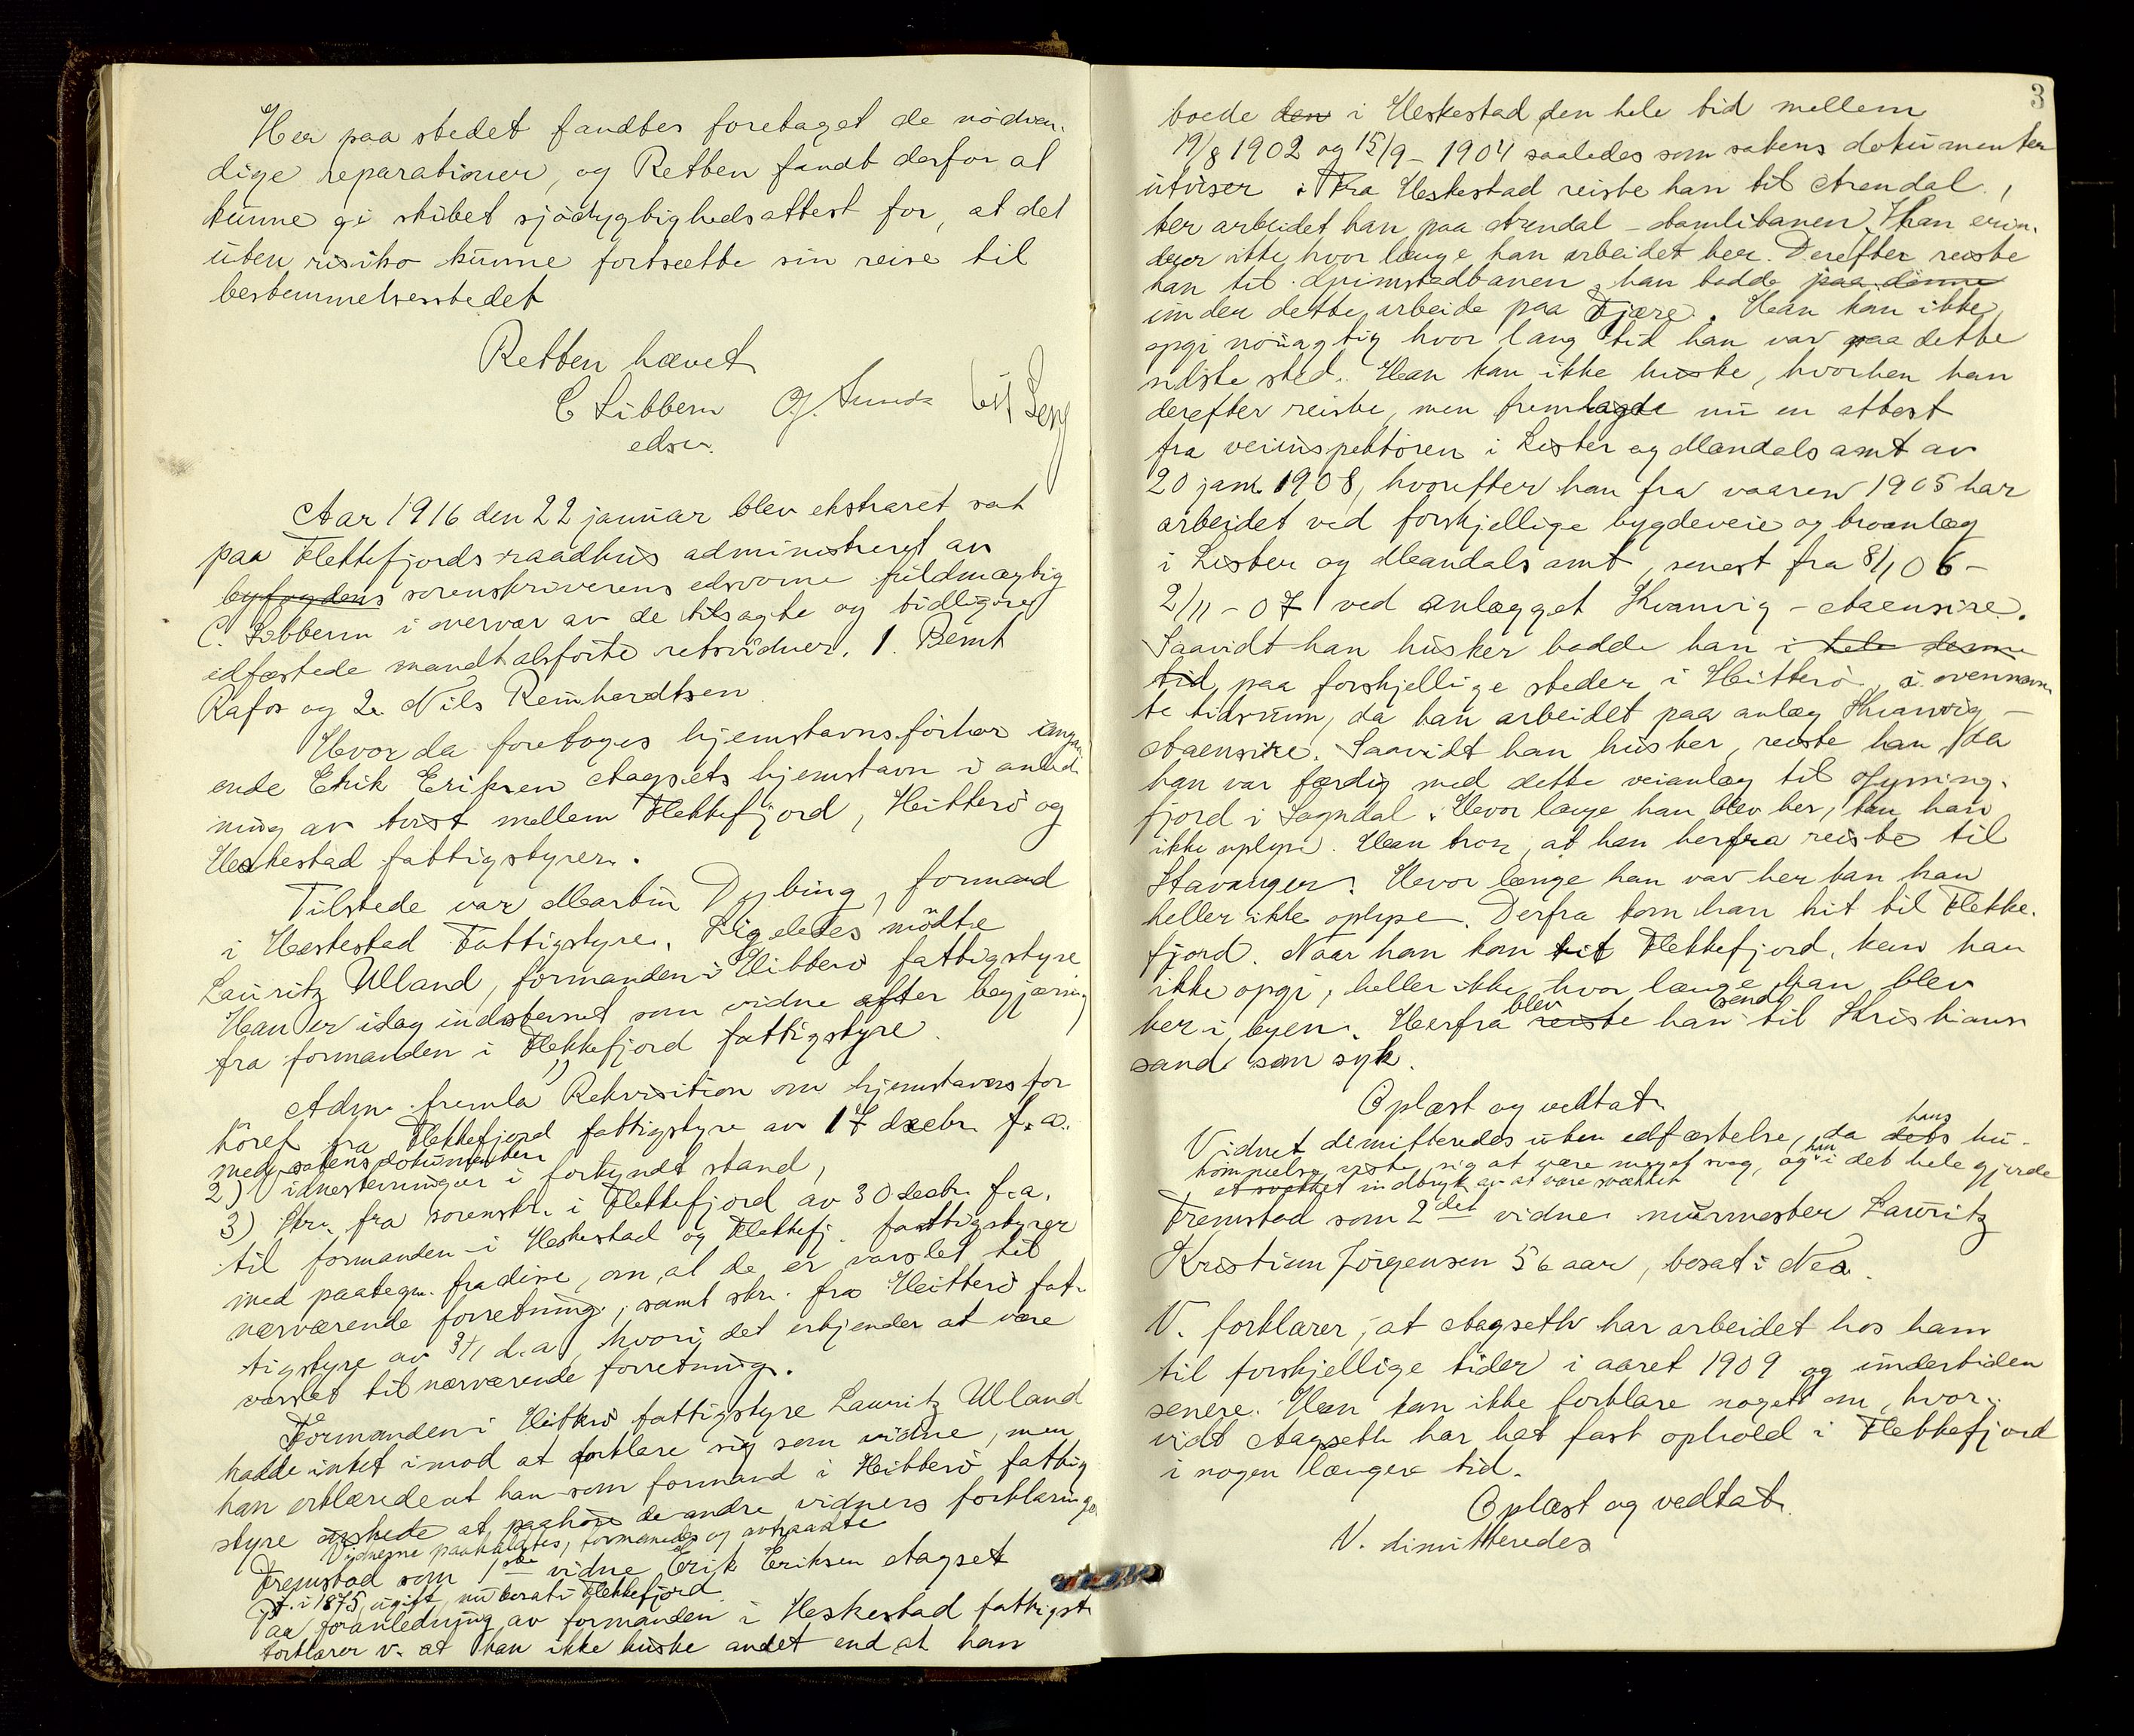 Her paa stedet fandtes foretaget de nödven-
dige reparationer, og Retten fandt derfor at
kunne gi skibet sjödygtighedsattest for, at det
uten risiko kunne fortsætte sin reise til
bestemmelsesstedet
Retten hævet
C Libbern
edsv.
Aar 1916 den 22 januar blev ekstraret sat
paa Flekkefjords raadhus administreret av
byfogdens sorenskriverens edsvorne fuldmægtig
C. Libbern i overvær av de tilsagte og tidligere
edfæstede mandtalsförte retsvidner, 1. Bernt
Rafos og 2. Nils Reinhardtsen
Hvor da foretoges hjemstavnsforhör angaa
ende Erik Eriksen Aagsets hjemstavn i anled
ning av tvist mellem Flekkefjord, Hitterö og
Heskestad fattigstyrer.
Tilstede var Martin Dybing, formand
i Heskestad Fattigstyre. Ligeledes mödte
Lauritz Ulland, formanden i Hitterö fattigstyre
Han er idag indstevnet som vidne efter begjæring
fra formanden i Flekkefjord fattigstyre.
Adm. fremla 1) Rekvisition om hjemstavnsfor
höret fra Flekkefjord fattigstyre av 17 decbr. f.a.
med sakens dokumenter
2) idnestevninger i forkyndt stand,
3) Skr. fra sorenskr. i Flekkefjord av 30 decbr. f.a.
til formanden i Heskestad og Flekkefj. fattigstyrer
med paategn. fra disse, om, at de er varslet til
nærværende forretning, samt skr. fra Hitterö fat-
tigstyre av 3/1 d.a., hvori det erkjender at være
varslet til nærværende forretning.
Formanden i Hitterö fattigstyre Lauritz Ulland
hadde intet imod at forklare sig som vidne, men
han erklærede at han som formand i Hitterö fattig
styre önskede at paahöre de andre vidners forklaringer
Vidnerne paakaldtes, formanedes og avtraadte
Fremstod som 1ste vidne Erik Eriksen Aagset
f. i 1875, ugift, nu bosat i Flekkefjord.
Paa foranledning av formanden i Heskestad fattigst
forklarer v. at han ikke huske andet end at han
3
boede den i Heskestad den hele tid mellem
19/8 1902 og 15/9 - 1904 saaledes som sakens dokumenter
utviser. Fra Heskestad reiste han til Arendal,
her arbeidet han paa Arendal - Aamlibanen. Han erin-
drer ikke, hvor længe han arbeidet her. Derefter reiste
han til Grimstadbanen, han bodde paa denne
under dette arbeide paa Fjære. Han kan ikke
opgi nöiagtig hvor lang tid han var paa dette
sidste sted. Han kan ikke huske, hvorhen han
derefter reiste, men fremlagde nu en attest
fra veiinspektören i Lister og Mandals amt av
20 jan. 1908, hvorefter han fra vaaren 1905 har
arbeidet ved forskjellige bygdeveie og broanlæg
i Lister og Mandals amt, senest fra 8/1 06 -
2/11 - 07 ved anlægget Kvanvig - Aaensire.
Saavidt han husker bodde han i hele denne
tid paa forskjellige steder i Hitterö, i ovennævn
te tidsrum, da han arbeidet paa anlæg Kvanvig -
Aaensire. Saavidt han husker, reiste han, da
han var færdig med dette veianlæg til Jyssing-
fjord i Sogndal. Hvor længe han blev her, kan han
ikke oplyse. Han tror, at han herfra reiste til
Stavanger. Hvor længe han var her kan han
heller ikke oplyse. Derfra kom han hit til Flekke-
fjord. Naar han kom hit Flekkefjord, kan han
ikke opgi, heller ikke hvor længe han blev
her i byen. Herfra blev reiste han sendt til Kristians
sand som syk.
Oplæst og vedtat.
Vidnet dimitteredes uten edfæstelse, da dets hans hu-
kommelse viste sig at være meget svag, og han i det hele gjorde
et svækket indtryk av at være svækket
Fremstod som 2det vidne murmester Lauritz
Kristian Jörgensen 56 aar, bosat i Nes.
V. forklarer, at Aagseth har arbeidet hos ham
til forskjellige tider i aaret 1909 og undertiden
senere. Han kan ikke forklare noget om, hvor-
vidt Aagseth har hat fast ophold i Flekkefjord
i nogen længere tid.
Oplæst og vedtat.
V. dimitteredes